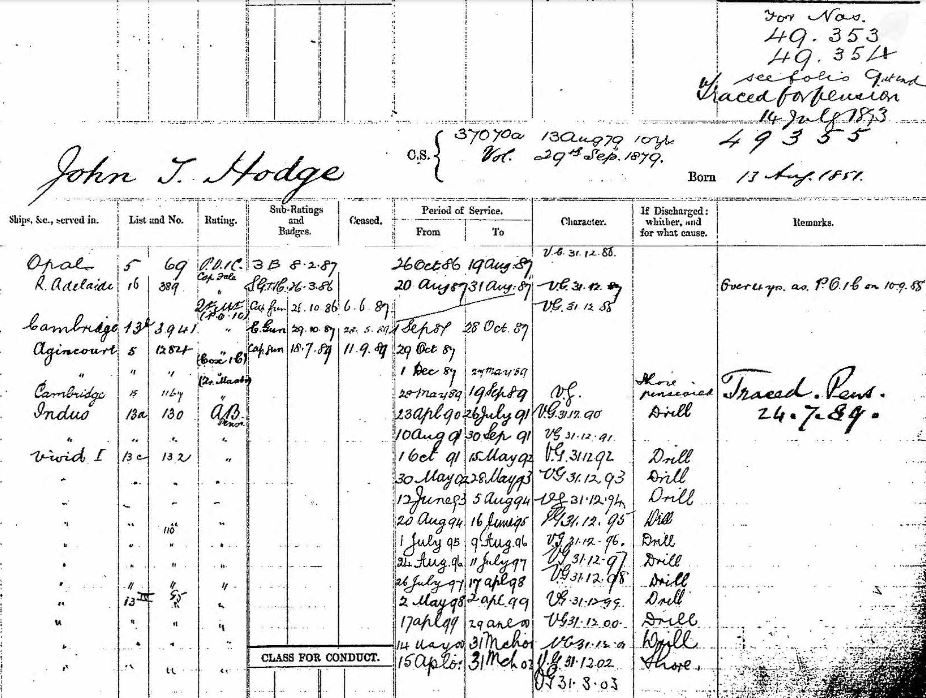 For Nos.
49.353
49.354
see folio
Traced for pension
49355
37070a 13 Aug 79 10 yrs
C.S. { Vol. 29th Sep. 1879.
John T. Hodge
Born 13 Aug. 1851.
Ships, &c., served in. List and No. Rating. Sub-Ratings and Badges. Ceased. Period of Service. From To Character. If Discharged: whither, and for what cause. Remarks.
V.G. 31.12.86
Opal 5 69 3 B 8.2.87 26 Oct 86 19 Aug 87
R. Adelaide 16 389 26.3.86 20 Aug 87 31 Aug 87 V.G. 31.12.87 as P.O.1C on
Cap Gun 26.10.86 6.6.87 V.G. 31.12.88
Cambridge 3941 " G. Gun 29.10.87 1 Sep 87 28 Oct. 87
Agincourt 5 1284 Cap Gun 18.7.89 11.9.89 29 Oct 87
" " " 1 Dec 87 27 May 89
Cambridge 15 1164 " 28 May 89 19 Sep 89 V.G. Shore pensioned Traced. Pens.
24.7.89.
Indus 13a 130 A.B. 23 Apl 90 26 July 91 V.G. 31.12.90 Drill
" " " 10 Aug 91 30 Sep 91 V.G. 31.12.91.
Vivid I 13c 132 " 1 Oct 91 15 May 92 V.G. 31.12.92 Drill
" " " 30 May 92 28 May 93 V.G. 31.12.93 Drill
" " " 12 June 93 5 Aug 94 V.G. 31.12.94 Drill
" " 110 " 20 Aug 94 16 June 95 V.G. 31.12.95 Drill
" " " 1 July 95 9 Aug 96 V.G. 31.12.96. Drill
" " " 24 Aug. 96 11 July 97 V.G. 31.12.97 Drill
" " " 26 July 97 17 Apl 98 V.G. 31.12.98 Drill
" 13 " 2 May 98 2 Apl 99 V.G. 31.12.99. Drill
" " " 17 Apl 99 V.G. 31.12.00. Drill
" " " 31 Mch 01 V.G. 31.12.01 Drill
CLASS FOR CONDUCT.
" " " 15 Apl 01 31 Mch 03 V.G. 31.12.02 Shore.
V.G. 31.3.03